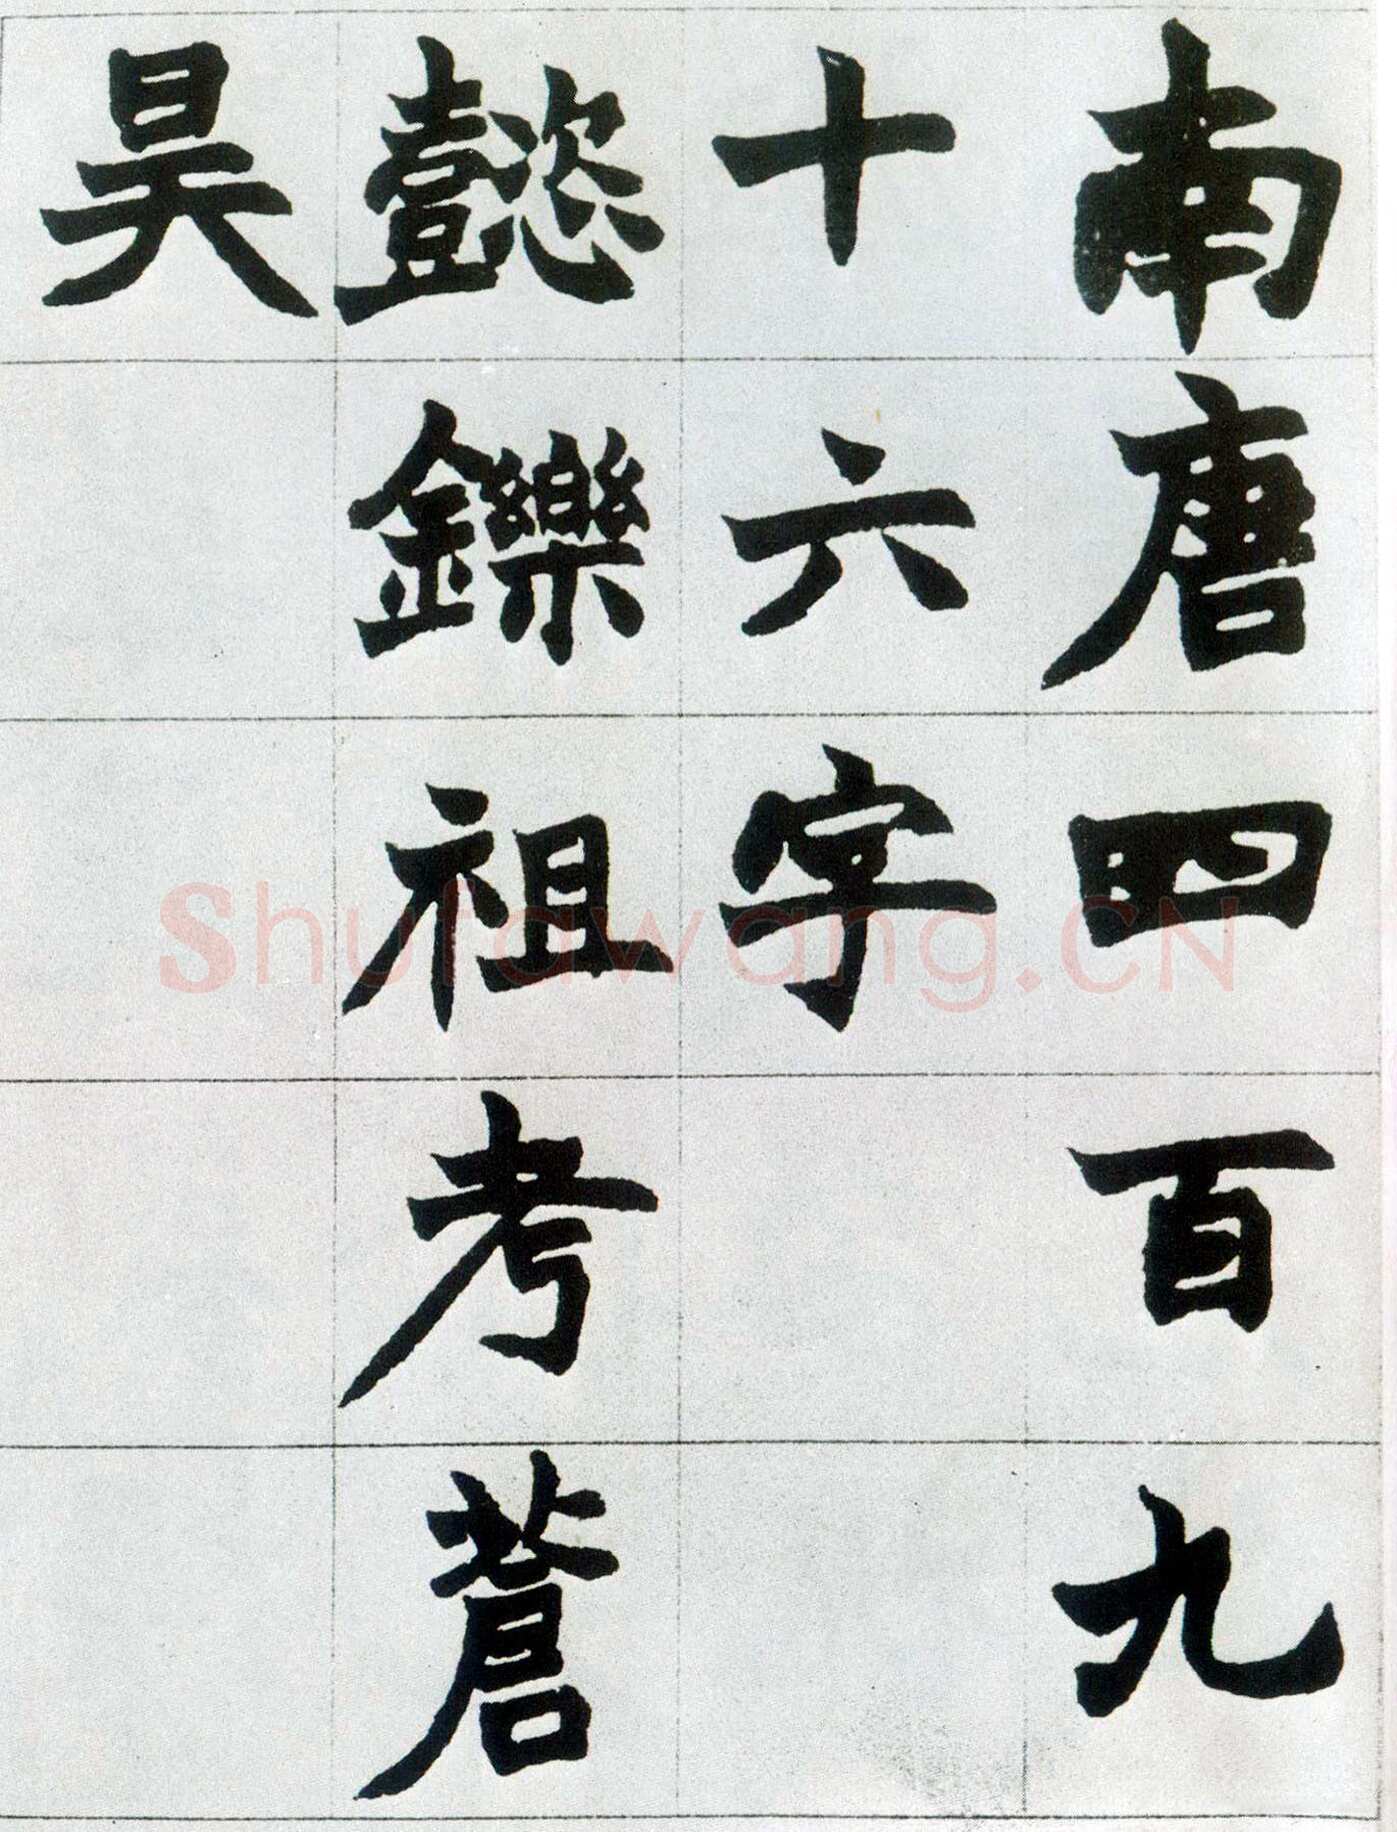 南唐四百九
十六字
懿鑠祖考蒼
昊
Shufawang.CN